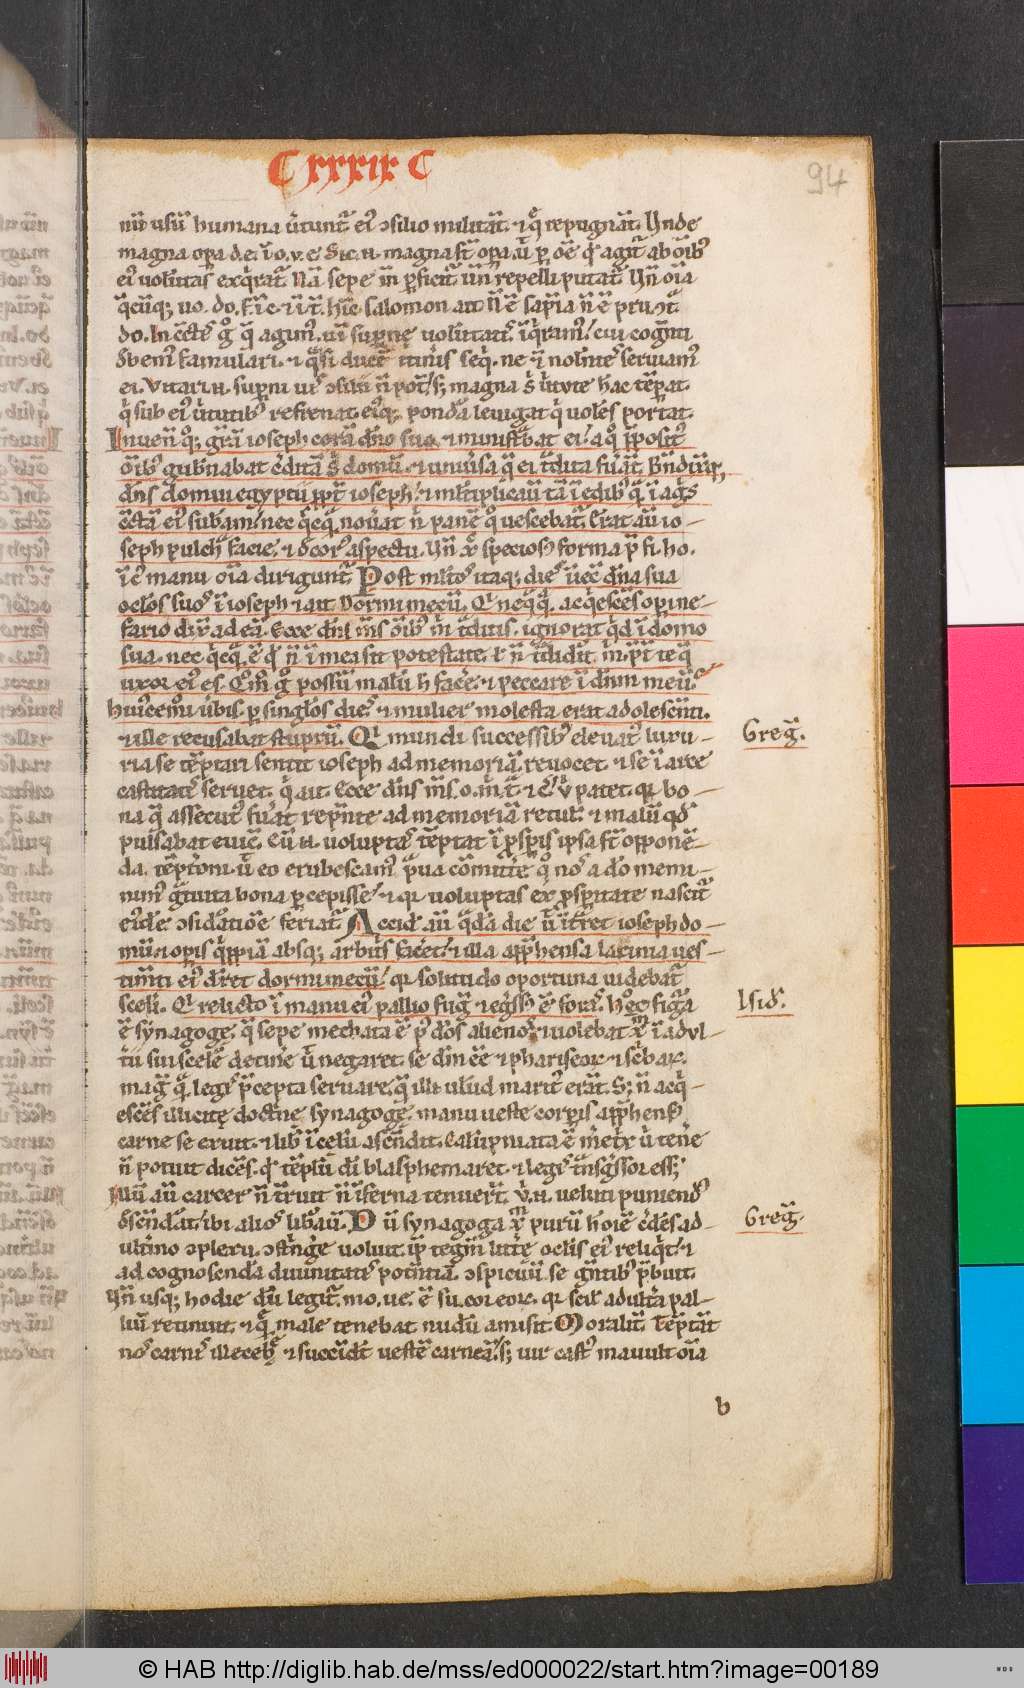 C xxxix C
94
nũ usũ humana ũtunt᷑ eiꝰ ↄsilio militãt. ⁊ qͦ repugnãt. Vnde
magna oꝑa d. eiꝰ. o. v. e. Sic .n. magna st̃ oꝑa ut ꝑ oẽ qͩ agit᷑ ab oĩbꝰ
eiꝰ uolũtas exq̃rat᷑. Nã sepe in ꝑficit᷑ uñ repelli putat᷑. Vñ oĩa
q̃cũq; uo. do. f. ĩ c. ⁊ ĩ t᷑. hĩc salomon ait Nẽ sapĩa ñ ẽ pru. ↄt᷑
do. In cũctis gͦ q̃ agimꝰ. uĩ suꝑnę uolũtatis ĩq̃ramꝰ. cui cogniti
dẽbemꝰ famulari. ⁊ qͣsi ducẽ itineris seqͥ. ne ⁊ ĩ nolẽnte seruiamꝰ
ei. Vitari .n. suꝑni uiꝰ ↄsilii ñ pot᷑. s; magna sͥ uirtute hac tẽꝑat.
qͥ sub eiꝰ ũtutibꝰ refrenat. eiꝰq; pondͣa leuigat qͥ uolẽs portat.
Inuenitq; grãm ioseph corã dño suo. ⁊ ministᷓbat ei. a qͦ p̃positꝰ
oĩbꝰ gub̃nabat c̃ditã sͥ domũ. ⁊ uniũsa q̃ ei tᷓdita fuãt. Bñdixitq;
dñs domui egyptii ꝓpt᷑ ioseph. ⁊ ml̃tiplicauit tã ĩ edibꝰ qͣ ĩ agͥs
cũctã eiꝰ subam̃. nec qͥcq̃ nouãt nͥ panẽ qͦ uescebat᷑. Erat aũt io-
seph pulchͣ facie. ⁊ dͤcorꝰ aspectu. Vñ xͨ speciosꝰ forma p̃ fi. ho.
ĩ cͥ manu oĩa dirigunt᷑ Post ml̃tos itaq; dies iniec̃ dñа sua
oclos suos ĩ ioseph ⁊ ait Dormi mecũ. Qi neqͣqͣ acq̃escẽs oꝑi ne-
fario dixͭ ad eã. Ecce dñs ms̃ oĩbꝰ m̃ tᷓditis. ignorat qͥd ĩ domo
sua. nec qͥcq̃ ẽ qͩ ñ ĩ mea sit potestate. ł ñ tᷓdidit᷑ m̃. p̃t te q̃
uxor eiꝰ es. Qͦm̃ gͦ possũ malũ h̃ facͤe. ⁊ peccare ĩ dñm meũ.
huiꝰcemͦi ũbis. ꝑ singlos dies. ⁊ mulier molesta erat adolescẽti.
⁊ ille recusabat stuprũ. Qi mundi successibꝰ eleuatꝰ luxu-
Greg̃.
ria se tẽptari sentit ioseph ad memoriã reuocet. ⁊ se ĩ arce
castitatis seruet. qͥ ait. Ecce dñs ms̃. o. m̃. t᷑. ⁊ c̃. v̾ patet. qi bo-
na q̃ assecutꝰ fuãt repẽte ad memoriã retulit. ⁊ malũ qͩ
pulsabat euic̃. Cũ .n. uoluptas tẽptat ĩ ꝓspis ipsa st̃ opponẽ-
da. tẽpt̃oni. ut eo erubescamꝰ praua cõmittͤe. qͦ nos a dͦo memi-
nimꝰ gᷓtuita bona ꝑcepisse. ⁊ qi uoluptas ex ꝓsꝑitate nascit᷑
eiꝰdẽ ↄsidᷓtiõe feriat᷑ Accidit aũt qͣdã die ut ĩtraret ioseph do-
mũ. ⁊ oꝑis qͥppiã absq; arbitris facͤet. ⁊ illa apprehensa lacinia ues-
timẽti eiꝰ dicͤet dormi mecũ. qi solitudo oportuna uidebat᷑
sceli. Qi relicto ĩ manu eiꝰ pallio fugͥ. ⁊ egͣssꝰ ẽ foras. Hoc figᷓa
Isid̾.
ẽ synagogę. q̃ sepe mechata ẽ pͦ dͦos alienos. ⁊ uolebat xͫ ĩ adul-
tii sui scelͤe detinͤe ut negaret se dm̃ ẽe ⁊ phariseoꝝ ⁊ sc̃baꝝ.
magͥ qͣ legis p̃cepta seruare. q̃ illi uelud maritꝰ erat. S; ñ acq̃-
escẽs illicitę doctͥne synagogę. manu ueste corꝑis apprehensꝰ
carne se exuit. ⁊ libͤ ĩ celũ ascẽdit. Calũpniata ẽ m̃etͥx ũ tenͤe
ñ potuit dicẽs. qͩ tẽplũ dĩ blasphemaret. ⁊ legis tᷓnsg̃ssor ess;
Illũ aũt carcer ñ tͬruit ñ ĩferna tenuerũt. v̾.n. ueluti puniendꝰ
dͤscẽdͤat. ibi alios libͤauit. Dũ synagoga xͫ purũ hoĩem credẽs ad-
Greg̃.
ultͥino ↄplexu ↄstͥngͤe uoluit. ip̃e tegm̃ litͤę oclis eiꝰ reliqͥt. ⁊
ad cognoscendͣa diuinitatis potẽtiã. ↄspicuũ se gẽtibꝰ p̃buit.
Vñ usq; hodie dũ legit᷑ mo. ue. ẽ su. cor eoꝝ. qi scilicet adultͤa pal-
liũ retinuit. ⁊ qͣ male tenebat nudũ amisit Moralit᷑. Tẽptãt
nos carnis illecebͤę ⁊ succẽdũt uestẽ carneã. s; uir castꝰ mauult oĩa
b
© HAB http://diglib.hab.de/mss/ed000022/start.htm?image=00189